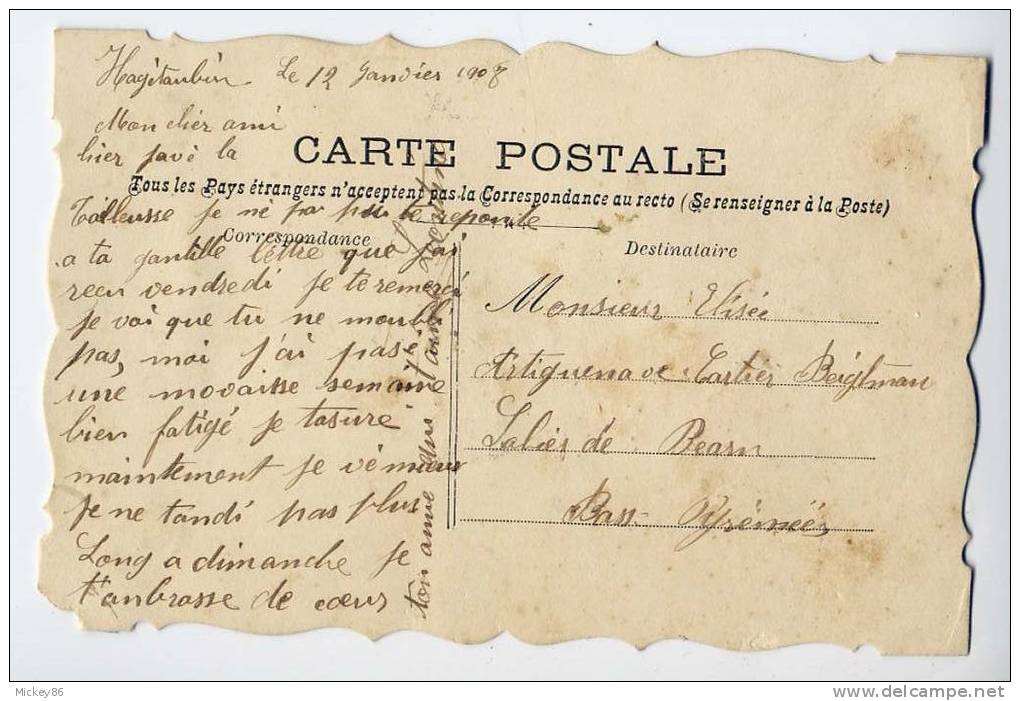 Hagétaubin Le 12 Janvier 1908
Mon cher ami
hier javé la
CARTE POSTALE
Tous les Pays étrangers n'acceptent pas la Correspondance au recto (Se renseigner à la Poste)
Tailleusse je né pa pu te reponde
Correspondance
a ta gantille lettre que j'ai
recu vendredi je te remerci
je voi que tu ne moubli
pas, moi j'ai pas
une movaisse semaine
bien fatigé je tasure
maintement je vé mieux
je ne tandi pas plus
Long a dimanche je
t'anbrasse de coeur
ton amie qui t'aime
Destinataire
Monsieur Elisée
Artiguenave Cartier Beigtman
Saliès de Bearn
Bass-Pyrénéés
Mickey86
http://www.delcampe.net